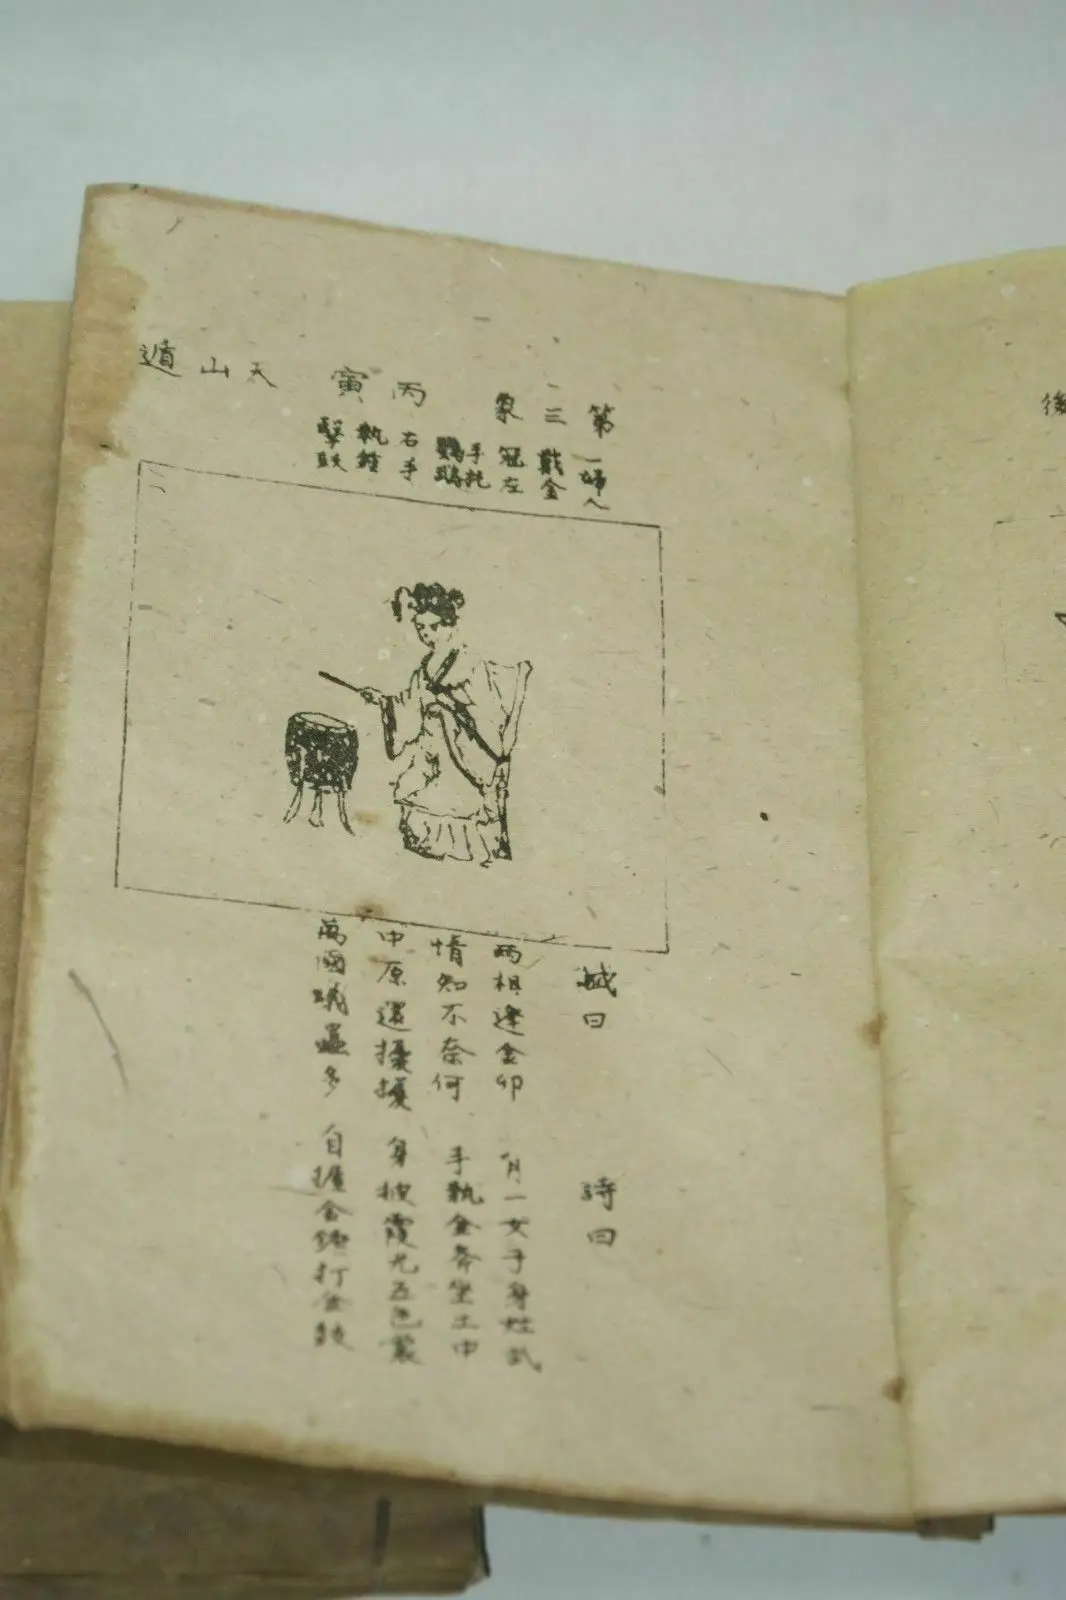 第三象 丙寅 天山遁
一婦人
戴金
冠左
手托
鸚鵡
右手
執錘
擊鼓
讖曰
兩相逢金卯
情知不奈何
中原還擾擾
萬國蟻蟲多
詩曰
一女子身姓武
手執金斧坐土中
身披霞光五色裳
自握金錘打金鼓
後